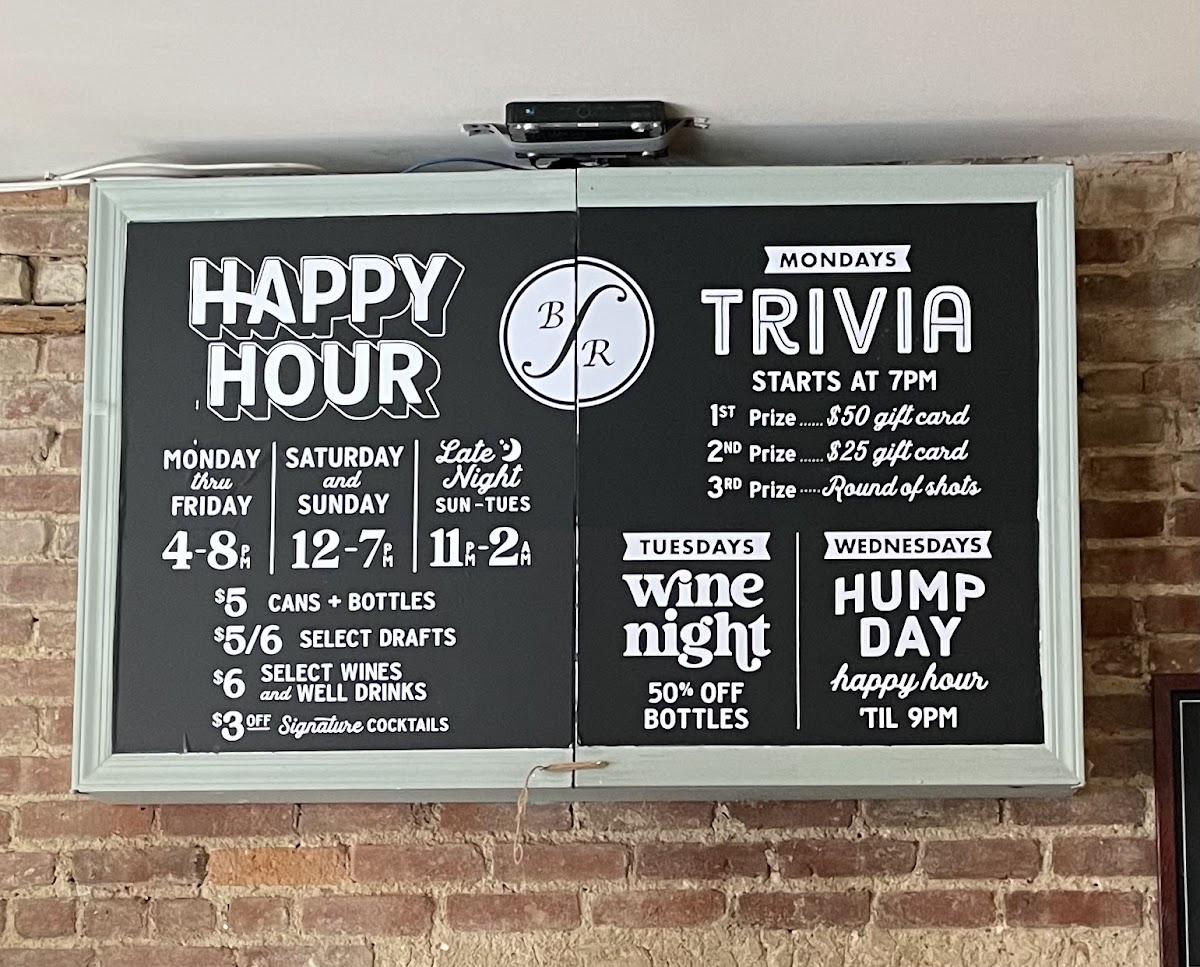 HAPPY
HOUR
MONDAY
thru
FRIDAY
4-8PM
SATURDAY
and
SUNDAY
12-7PM
Late
Night
SUN-TUES
11PM-2AM
$5 CANS + BOTTLES
$5/6 SELECT DRAFTS
$6 SELECT WINES
and WELL DRINKS
$3 OFF Signature COCKTAILS
B
R
MONDAYS
TRIVIA
STARTS AT 7PM
1ST Prize ...... $50 gift card
2ND Prize ...... $25 gift card
3RD Prize ..... Round of shots
TUESDAYS
wine
night
50% OFF
BOTTLES
WEDNESDAYS
HUMP
DAY
happy hour
'TIL 9PM